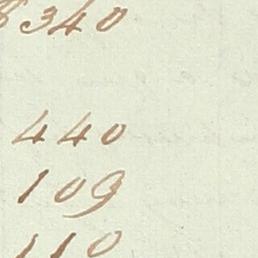 8340
440
109
110